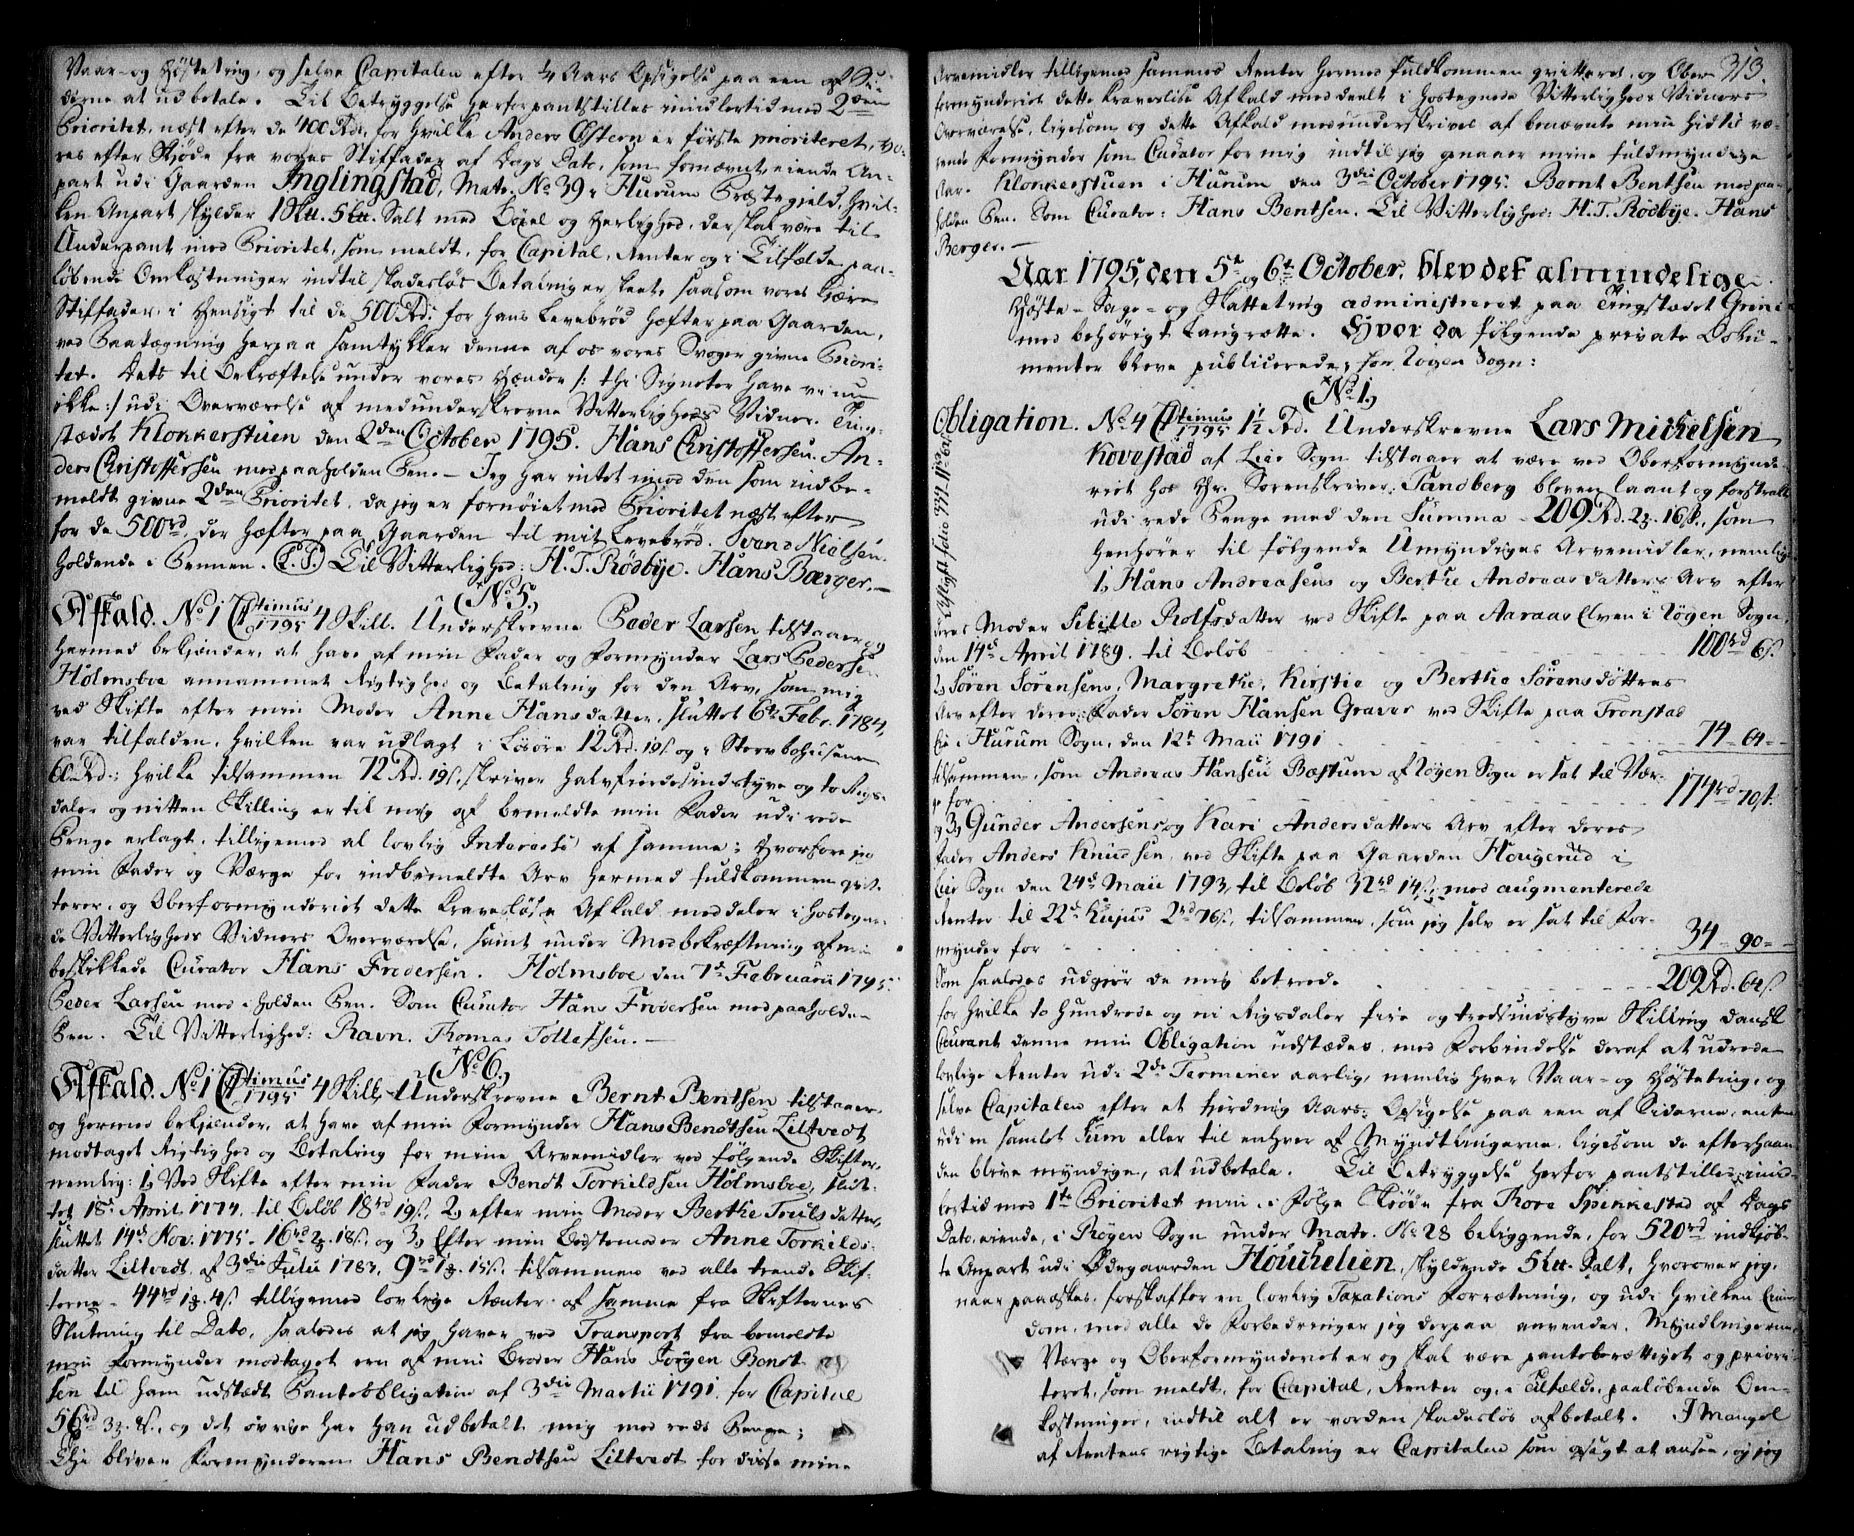 Vaar- og Høsteting, og selve Capitalen efter 1/4 Aars Opsigelse paa een af Si-
derne at udbetale. Til Betryggelse herfor pantstilles imidlertid med 2den
Prioritet, næst efter de 400 Rdr, for hvilke Anders Østern er første prioriteret, vo-
res efter Skjøde fra vores Stiffader af Dags Dato, som fornævnt, eiende An-
part udi Gaarden Inglingstad, Matr. No 39 i Hurum Præstegield, hvil-
ken Anpart skylder 1 Skp. 5 Lp. Salt med Bøxel og Herlighed, der skal være til
Underpant med Prioritet, som meldt, for Capital, Renter og i Tilfælde paa-
løbende Omkostninger indtil skadesløs Betaling er skeet, saasom vores kjære
Stiffader, i Hensigt til de 500 Rd: for hans Levebrød hæfter paa Gaarden,
ved Paategning herpaa samtykker denne af os vores Svoger givne Priori-
tet. Dets til Bekræftelse under vores Hænder /: thi Signeter have vi nu
ikke :/ udi Overværelse af medunderskrevne Vitterligheds Vidner. Ting-
stædet Klokkerstuen den 2den October 1795. Hans Christoffersen. An-
ders Christoffersen med paaholden Pen. — Jeg har intet imod den som indbe-
meldt givne 2den Prioritet, da jeg er fornøiet med Prioritet næst efter
for de 500rd, der hæfter paa Gaarden til mit Levebrød. Svend Nielsen
holdende i Pennen. (L.S.) Til Vitterlighed: H. T. Rødbye. Hans Børger. —
(No. 5.)
Affald. No 1 Ctimus 1795 4 Skill. Underskrevne Peder Larsen tilstaaer og
hermed bekjender, at have af min Fader og Formynder Lars Pedersen
Holmsboe annammet Rigtighed og Betaling for den Arv, som mig
ved Skifte efter min Moder Anne Hansdatter, sluttet 6te Febr. 1784,
var tilfalden, hvilken var udlagt i Løsøre 12 Rd. 19 s. og i Stervbohusene
60 Rd:; hvilke tilsammen 72 Rd. 19 s., skriver halvfierdesindstyve og to Rigs-
daler og nitten Skilling er til mig af bemeldte min Fader udi rede
Penge erlagt, tilligemed al lovlig Interesse af samme; hvorfore jeg
min Fader og Værge for indbemeldte Arv hermed fuldkommen qvit-
terer, og Oberformynderiet dette kravesløse Afkald meddeler i hostegnen-
de Vitterligheds Vidners Overværelse, samt under Medbekræftning af min
beskikkede Curator Hans Fredersen. Holmsboe den 7de Februarii 1795.
Peder Larsen med i holden Pen. Som Curator Hans Fredersen med paaholden
Pen. Til Vitterlighed: Ravn. Thomas Tollefsen. —
(No 6.)
Affald. No 1 Ctimus 1795 4 Skill. Underskrevne Bernt Bentsen tilstaaer
og hermed bekjender, at have af min Formynder Hans Bendtsen Liltvedt
modtaget Rigtighed og Betaling for mine Arvemidler ved følgende Skifter,
nemlig: 1, Ved Skifte efter min Fader Bendt Torkildsen Holmsboe, slut-
tet 18de April 1774, til Beløb 18rd 19 s., 2, efter min Moder Berthe Trulsdatter,
sluttet 14de Nov. 1775. 16rd 2 . 18 s., og 3, Efter min Bestemoder Anne Torkilds-
datter Liltvedt, af 3die Julii 1783, 9rd 1 . 15 s. tilsammen ved alle trende Skif-
terne - 44rd 1 . 4 s. tilligemed lovlige Renter af samme fra Skifternes
Slutning til Dato, saaledes at jeg haver ved Transport fra bemeldte
min Formynder modtaget een af min Broder Hans Jørgen Bendt-
sen til ham udstædt Panteobligation af 3die Martii 1791 for Capital
56rd 3 . 8 s., og det øvrige har han udbetalt mig med rede Penge;
Thi bliver Formynderen Hans Bendtsen Liltvedt for disse mine
313.
Arvemidler tilligemed sammes Renter hermed fuldkommen qvitteret, og Ober-
formynderiet dette kravesløse Afkald meddeelt i hostegnede Vitterligheds Vidners
Overværelse, ligesom og dette Afkald medunderskrives af benævnte min hidtil væ-
rende Formynder som Curator for mig indtil jeg opnaaer mine fuldmyndige
Aar. Klokkerstuen i Hurum den 3die October 1795. Bernt Bentsen med paa-
holden Pen. Som Curator: Hans Bentsen. Til Vitterlighed: H. T. Rødbye. Hans
Berger. —
Aar 1795, den 5te og 6te October, blev det almindelige
Høste- Sage- og Skatteting administreret paa Tingstædet Grini
med behørigt Laugrætte. Hvor da følgende private Doku-
menter bleve publicerede, for Røgen Sogn:
(No. 1.)
Obligation. No 4 Ctimus 1795 1½ Rd. Underskrevne Lars Mickelsen
Kovestad af Lier Sogn tilstaaer at være ved Oberformynde-
riet hos Hr. Sorenskriver Tandberg bleven laant og forstrakt
udi rede Penge med den Summa - 209 Rd. 2 . 16 s., som
henhører til følgende Umyndiges Arvemidler, nemlig
1, Hans Andreasens og Berthe Andreasdatters Arv efter
deres Moder Sibille Rolfsdatter ved Skifte paa Aaraas Elven i Røgen Sogn,
den 14de April 1789. til Beløb 100rd 6 s.
2, Søren Sørensens, Margrethe, Kirstie og Berthe Sørensdøttres
Arv efter deres Fader Søren Hansen Graver ved Skifte paa Tronstad
Eie i Hurum Sogn, den 12te Maii 1791 74 - 64 -
tilsammen, som Andreas Hansen Bæstum af Røgen Sogn er sat til Vær-
ge for 174rd 70 s.
og 3, Gunder Andersens og Kari Andersdatters Arv efter deres
Fader Anders Knudsen, ved Skifte paa Gaarden Hougerud i
Lier Sogn den 24de Maii 1793, til Beløb 32rd 14 s., med augmenterede
Renter til 22de hujus 2rd 76 s., tilsammen, som jeg selv er sat til For-
mynder for 34 - 90 -
Som saaledes udgjør de mig betroede 209 Rd. 64 s
for hvilke to Hundrede og ni Rigsdaler fire og tredsindstyve Skilling dansk
Courant denne min Obligation udstædes, med Forbindelse deraf at udrede
lovlige Renter udi 2de Terminer aarlig, nemlig hver Vaar- og Høsteting, og
selve Capitalen efter et fierdingAars Opsigelse paa een af Siderne, enten
udi en samlet Sum eller til enhver af Myndlingerne, ligesom de efterhaan-
den blive myndige, at udbetale. Til Betryggelse herfor pantstilles imid-
lertid med 1ste Prioritet min, i Følge Skjøde fra Thore Spikkestad af Dags
Dato, eiende, i Røgen Sogn under Matr. No 28 beliggende, for 520rd indkjøb-
te Anpart udi Ødegaarden Houchelien, skyldende 5 Lp. Salt, hvorover jeg,
naar paaæskes, forskaffer en lovlig Taxations Forretning, og udi hvilken Eien-
dom, med alle de Forbedringer jeg derpaa anvender, Myndlingernes
Værge og Oberformynderiet er og skal være panteberettiget og priori-
teret, som meldt, for Capital, Renter og, i Tilfælde, paaløbende Om-
kostninger, indtil alt er vorden skadesløs afbetalt. I Mangel
af Rentens rigtige Betaling er Capitalen som opsagt at ansee, og jeg